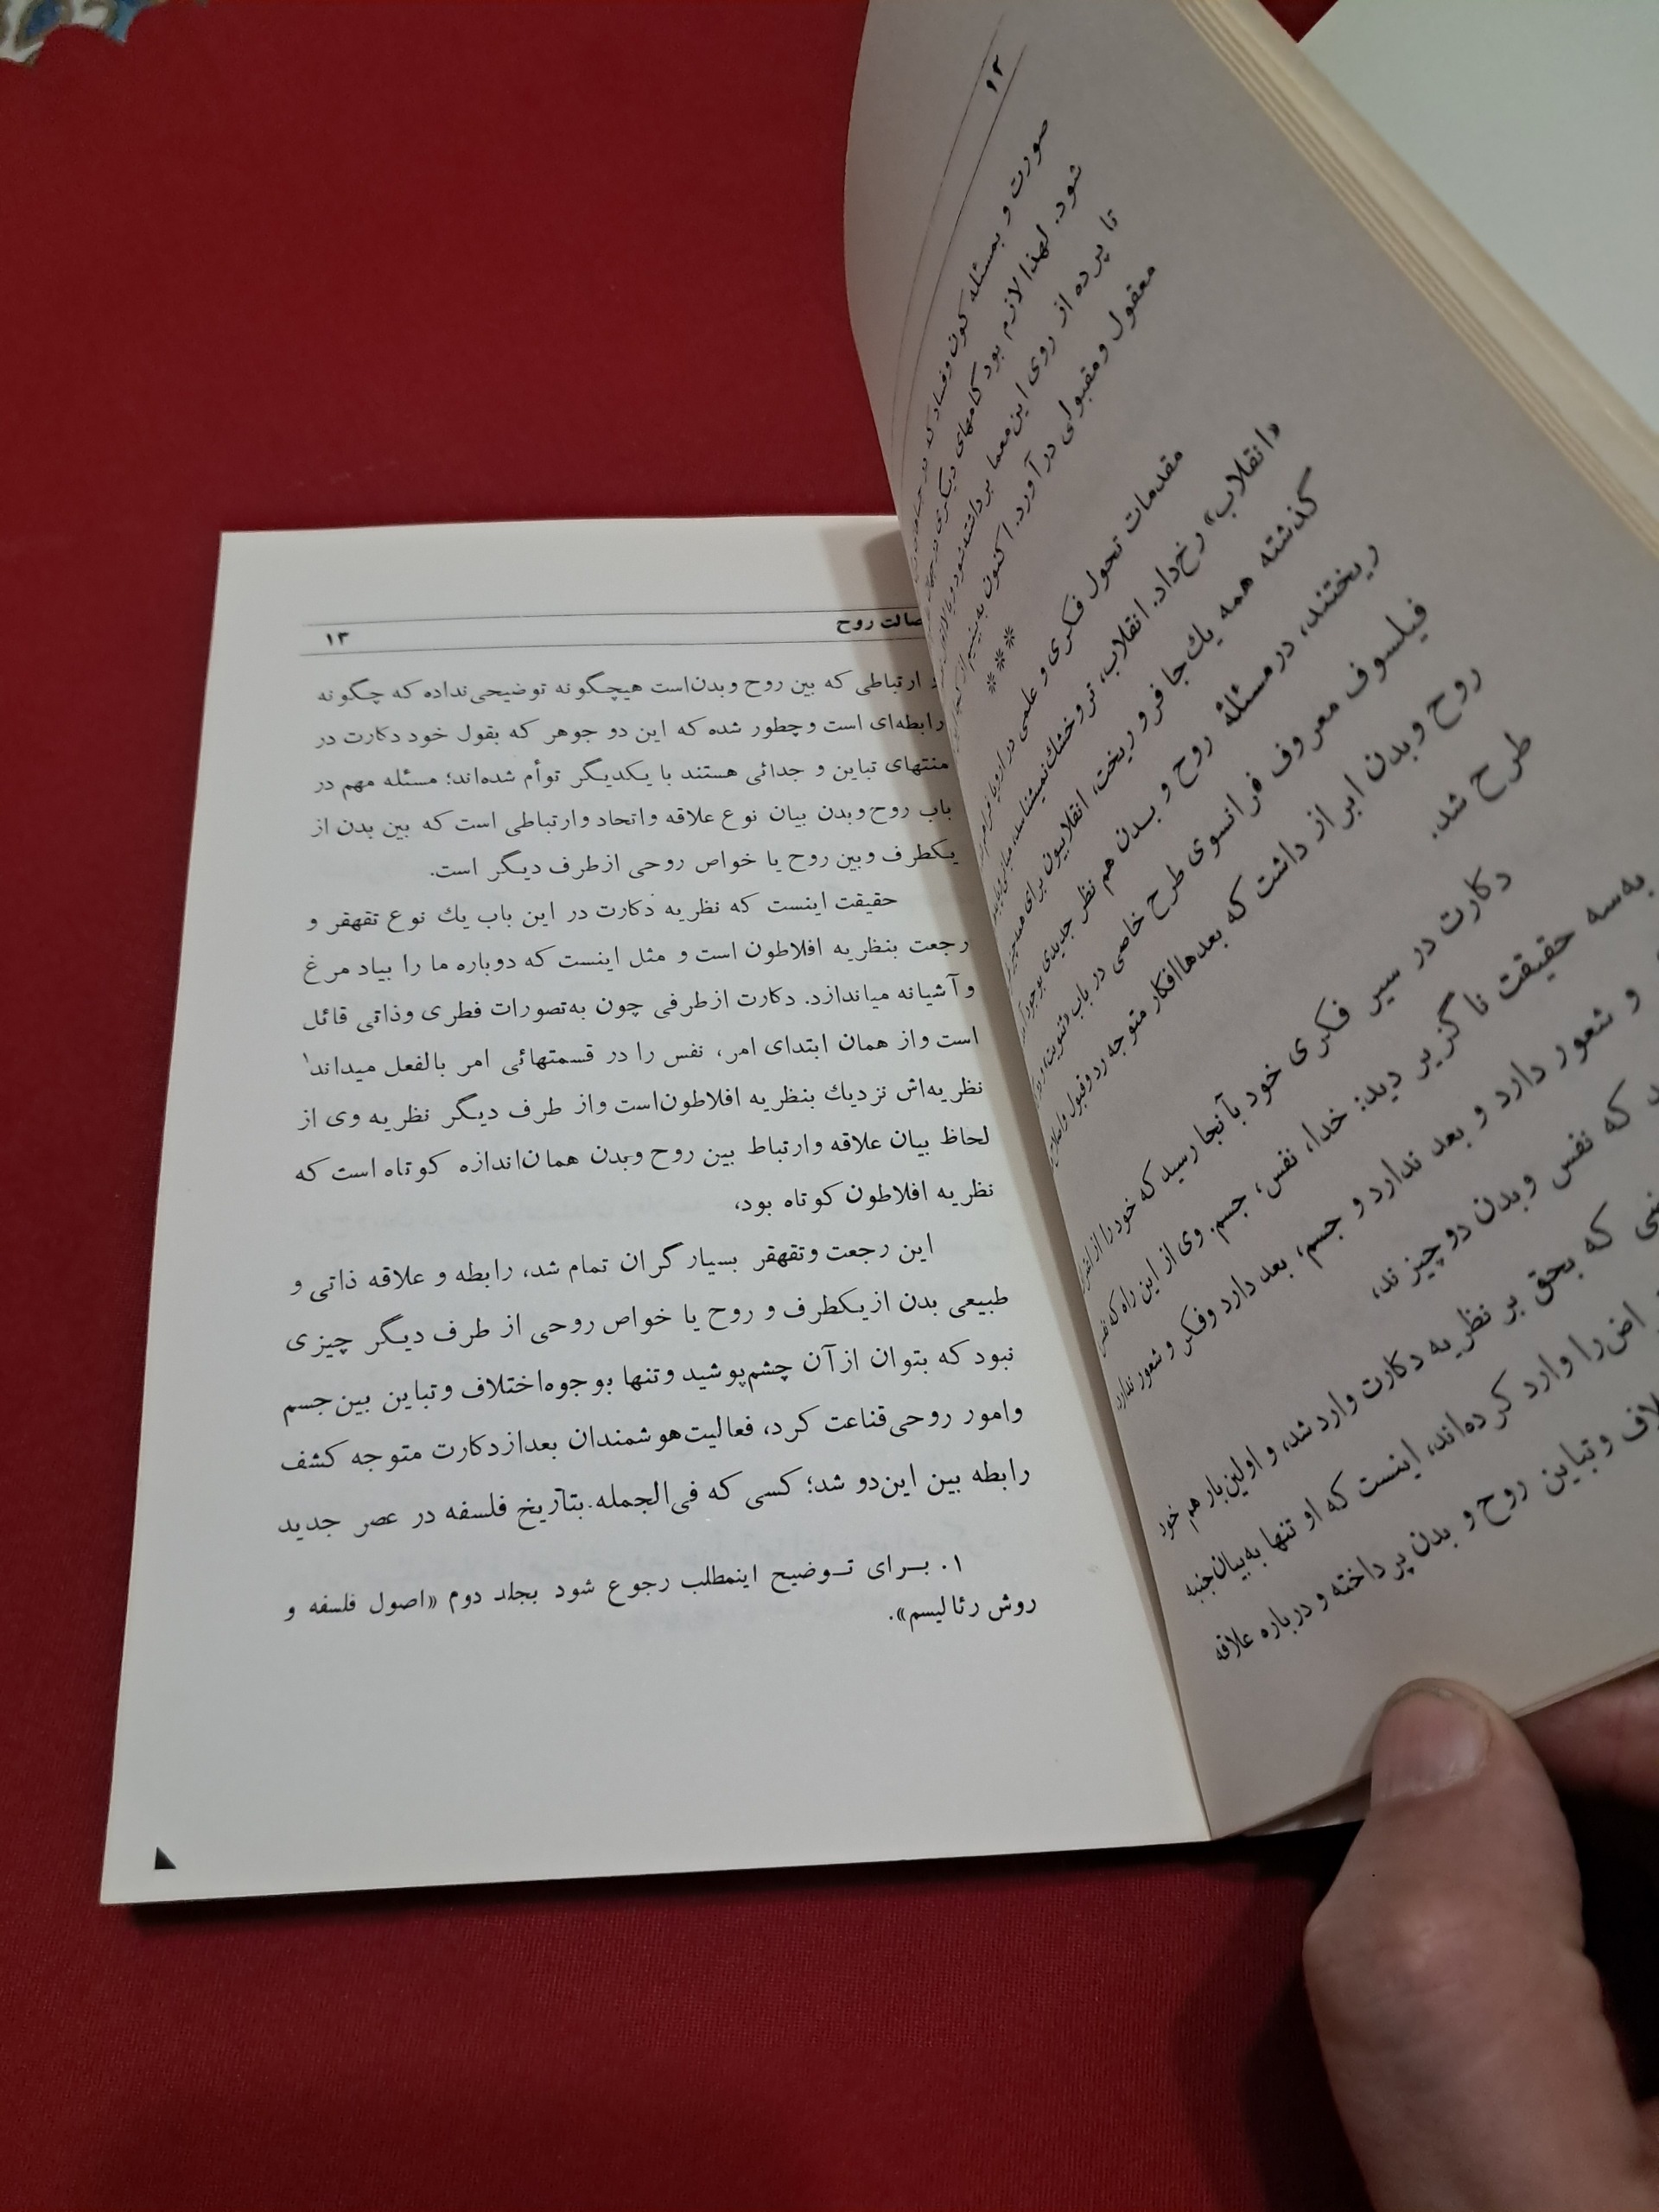 ۱۲
صورت و بمسئله کون وفساد که در
شود. لهذا لازم بود گامهای دیگری در جهان
تا پرده از روی این معما برداشته شود و
معقول ومقبولی در آورد. اکنون به بینیم از
***
مقدمات تحول فکری و علمی در اروپا فراهم
«انقلاب» رخ داد. انقلاب، تر و خشك نمیشناسد،
گذشته همه یك جا فرو ریخت، انقلابیون برای همه چیز
ریختند، در مسئلۀ روح و بدن هم نظر جدیدی بوجود
فیلسوف معروف فرانسوی طرح خاصی در باب ثنویت و
روح و بدن ابراز داشت که بعدها افکار متوجه رد و قبول و
طرح شد.
دکارت در سیر فکری خود بآنجا رسید که خود را از
به سه حقیقت ناگزیر دید: خدا، نفس، جسم. وی از این راه که نفس
و شعور دارد و بعد ندارد و جسم، بعد دارد وفکر و شعور ندارد
که نفس وبدن دو چیزند،
که بحق بر نظریه دکارت وارد شد، و اولین بار هم خود
را وارد کرده‌اند، اینست که او تنها به بیان جنبه
وتباین روح و بدن پرداخته و درباره علاقه
صالت روح
۱۳
ارتباطی که بین روح وبدن‌است هیچگونه توضیحی‌نداده که چگونه
رابطه‌ای است وچطور شده که این دو جوهر که بقول خود دکارت در
منتهای تباین و جدائی هستند با یکدیگر توأم شده‌اند؛ مسئله مهم در
باب روح‌وبدن بیان نوع علاقه واتحاد وارتباطی است که بین بدن از
یکطرف وبین روح یا خواص روحی ازطرف دیگر است.
حقیقت اینست که نظریه دکارت در این باب یك نوع تقهقر و
رجعت بنظریه افلاطون است و مثل اینست که دوباره ما را بیاد مرغ
وآشیانه میاندازد. دکارت ازطرفی چون به‌تصورات فطری وذاتی قائل
است واز همان ابتدای امر، نفس را در قسمتهائی امر بالفعل میداند۱
نظریه‌اش نزدیك بنظریه افلاطون‌است واز طرف دیگر نظریه وی از
لحاظ بیان علاقه وارتباط بین روح وبدن همان‌اندازه کوتاه است که
نظریه افلاطون کوتاه بود،
این رجعت وتقهقر بسیار گران تمام شد، رابطه و علاقه ذاتی و
طبیعی بدن ازیکطرف و روح یا خواص روحی از طرف دیگر چیزی
نبود که بتوان ازآن چشم‌پوشید وتنها بوجوه‌اختلاف وتباین بین‌جسم
وامور روحی‌قناعت کرد، فعالیت‌هوشمندان بعدازدکارت متوجه کشف
رابطه بین این‌دو شد؛ کسی که فی‌الجمله بتاریخ فلسفه در عصر جدید
۱. بـرای تـوضیح اینمطلب رجوع شود بجلد دوم «اصول فلسفه و
روش رئالیسم».